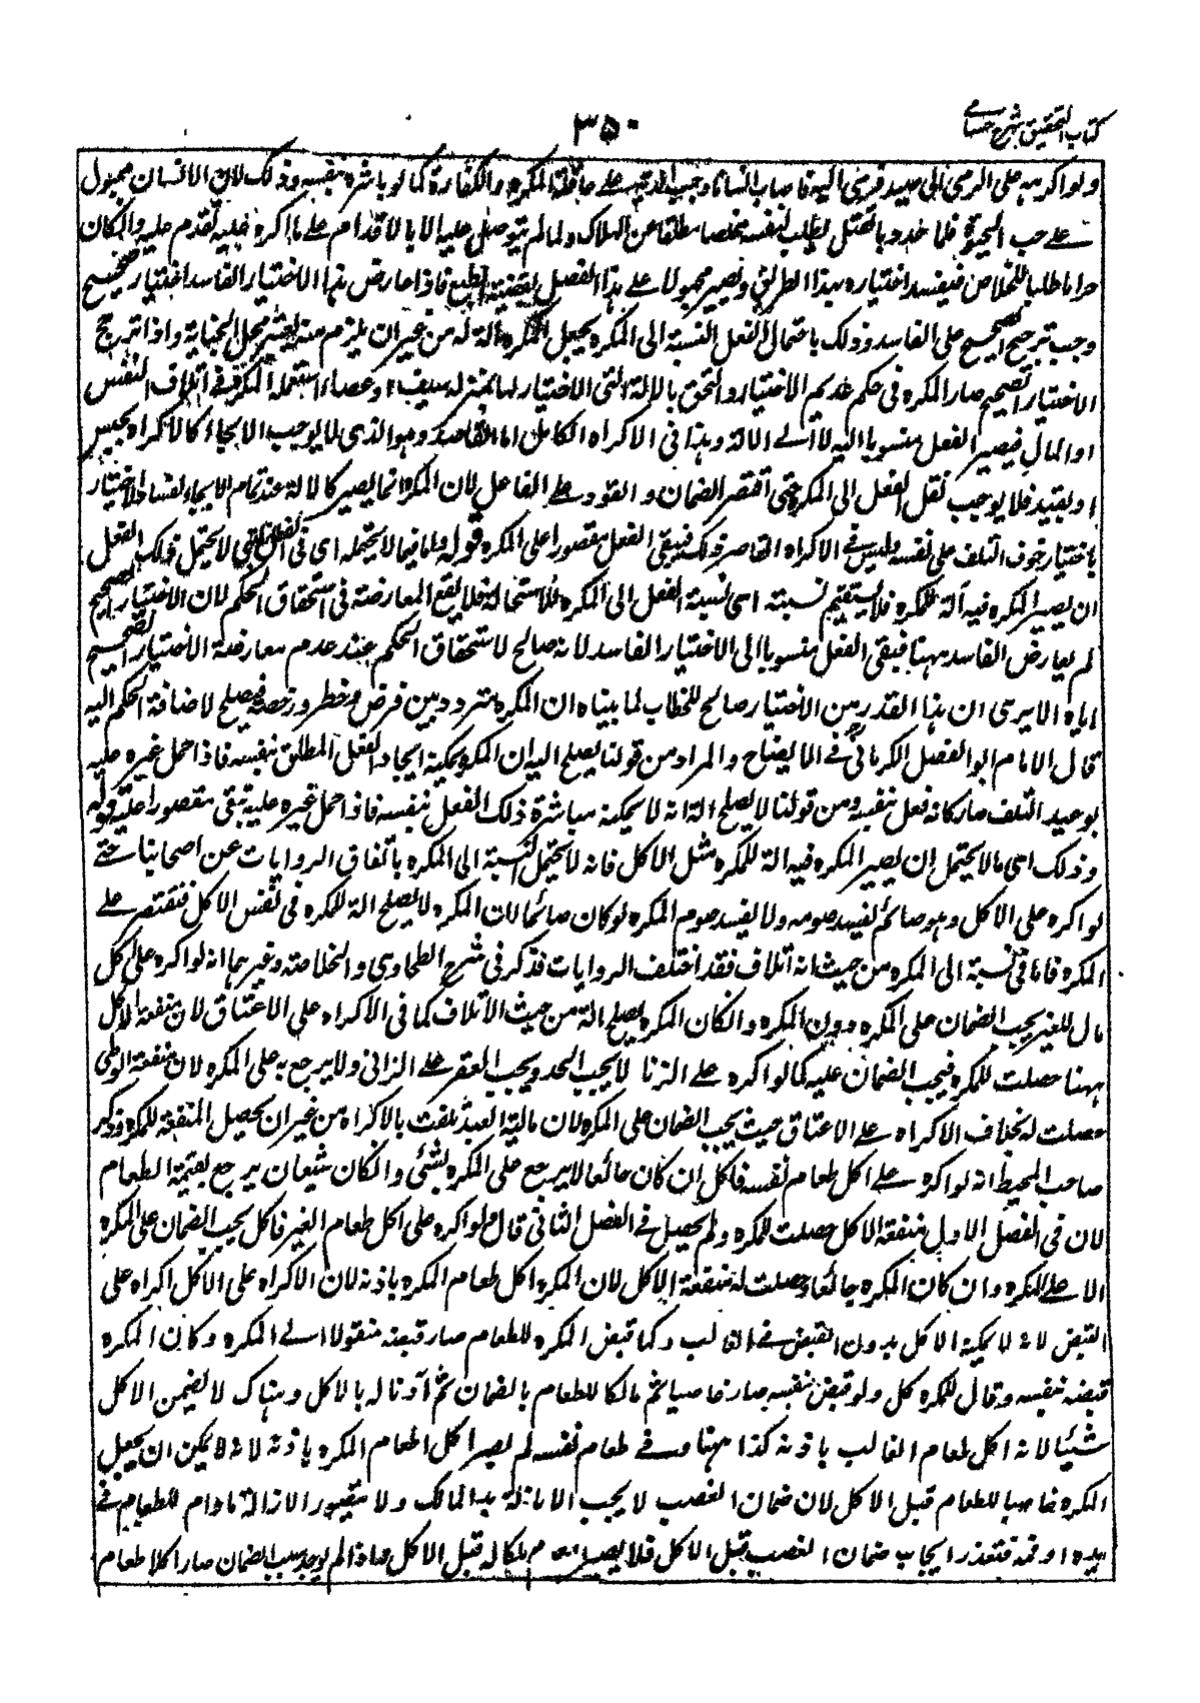 كتاب التحقيق شرح حسامى
٣٥٠
ولو اكرهه على الرمى الى صيد فرمى اليه فاصاب انسانا وجب الدية على عاقلة المكره والكفارة كما لو باشره بنفسه وذلك لان الانسان مجبول
على حب الحيوة فلما هدد بالقتل يطلب لنفسه مخلصا مطلقا عن الهلاك ولما لم يتوصل عليه الا بالاقدام على ما اكره عليه تقدم عليه وان كان
حراما طلبا للخلاص فيفسد اختياره بهذا الطريق ويصير مجبولا على هذا الفصل بقضية الطبع فاذا عارض هذا الاختيار الفاسد اختيار صحيح
وجب ترجيح الصحيح على الفاسد وذلك باحتمال الفعل النسبة الى المكره بجعل المكره آلة له من غير ان يلزم منه تغير محل الجناية واذا ترجح
الاختيار الصحيح صار المكره فى حكم عديم الاختيار والتحق بالآلة التى لا اختيار لها بمنزلة سيف او عصا استعمله المكره فى اتلاف النفس
او المال فيصير الفعل منسوبا اليه لا الى الآلة وهذا فى الاكراه الكامل اما القاصر وهو الذى لا يوجب الالجاء كالاكراه بحبس
او بقيد فلا يوجب نقل الفعل الى المكره حتى اقتصر الضمان والقود على الفاعل لان المكره انما يصير كالآلة عند تمام الالجاء لفساد الاختيار
باختيار خوف التلف على نفسه وليس فى الاكراه القاصر ذلك فيبقى الفعل مقصورا على المكره قوله واما فيما لا يحتمله اى فى الفعل الذى لا يحتمل ذلك الفعل
ان يصير المكره فيه آلة للمكره فلا يستقيم نسبته اى نسبة الفعل الى المكره للاستحالة فلا يقع المعارضة فى استحقاق الحكم لان الاختيار الصحيح
لم يعارض الفاسد ههنا فبقى الفعل منسوبا الى الاختيار الفاسد لانه صالح لاستحقاق الحكم عند عدم معارضة الاختيار الصحيح
اياه الا يرى ان هذا القدر من الاختيار صالح للخطاب لما بيناه ان المكره متردد بين فرض وخطر ورخصة فيصلح لاضافة الحكم اليه
قال الامام ابو الفضل الكرمانى فى الايضاح والمراد من قولنا يصلح آلة ان المكره يمكنه ايجاد الفعل المطلق بنفسه فاذا حمل غيره عليه
بوعيد التلف صار كانه فعل بنفسه ومن قولنا لا يصلح آلة انه لا يمكنه مباشرة ذلك الفعل بنفسه فاذا حمل غيره عليه بقى مقصورا عليه قوله
وذلك اى ما لا يحتمل ان يصير المكره فيه آلة للمكره مثل الاكل فانه لا يحتمل النسبة الى المكره باتفاق الروايات عن اصحابنا حتى
لو اكره على الاكل وهو صائم يفسد صومه ولا يفسد صوم المكره لو كان صائما لان المكره لا يصلح آلة للمكره فى نفس الاكل فتقتصر على
المكره فاما فى نسبته الى المكره من حيث انه اتلاف فقد اختلف الروايات فذكر فى شرح الطحاوى والخلاصة وغيرهما انه لو اكره على اكل
مال للغير يجب الضمان على المكره دون المكره وان كان المكره يصلح آلة من حيث الاتلاف كما فى الاكراه على الاعتاق لان منفعة الاكل
ههنا حصلت للمكره فيجب الضمان عليه كما لو اكره على الزنا لا يجب الحد ويجب العقر على الزانى ولا يرجع به على المكره لان منفعة الوطى
حصلت له بخلاف الاكراه على الاعتاق حيث يجب الضمان على المكره لان مالية العبد تلفت بالاكراه من غير ان يحصل المنفعة للمكره وذكر
صاحب المحيط انه لو اكره على اكل طعام نفسه فاكل ان كان جائعا لا يرجع على المكره بشئ وان كان شبعان يرجع بقيمة الطعام
لان فى الفصل الاول منفعة الاكل حصلت للمكره ولم يحصل فى الفصل الثانى قال ولو اكره على اكل طعام الغير فاكل يجب الضمان على المكره
لا على المكره وان كان المكره جائعا وحصلت له منفعة الاكل لان المكره اكل طعام المكره باذنه لان الاكراه على الاكل اكراه على
القبض لانه لا يمكنه الاكل بدون القبض فى الغالب وكما قبض المكره للطعام صار قبضه منقولا الى المكره وكان المكره
قبضه بنفسه وقال للمكره كل ولو قبض بنفسه صار غاصبا ثم مالكا للطعام بالضمان ثم آذنا له بالاكل وهناك لا يضمن الاكل
شيئا لانه اكل طعام الغالب باذنه كذا ههنا وفى طعام نفسه لم يصر اكل طعام المكره باذنه لانه لا يمكن ان يجعل
المكره غاصبا للطعام قبل الاكل لان ضمان الغصب لا يجب الا بازالة يد المالك ولا يتصور الازالة ما دام الطعام فى
يده او فمه فتعذر ايجاب ضمان الغصب قبل الاكل فلا يصير الطعام ملكا له قبل الاكل واذا لم يوجد سبب الضمان صار اكلا طعام